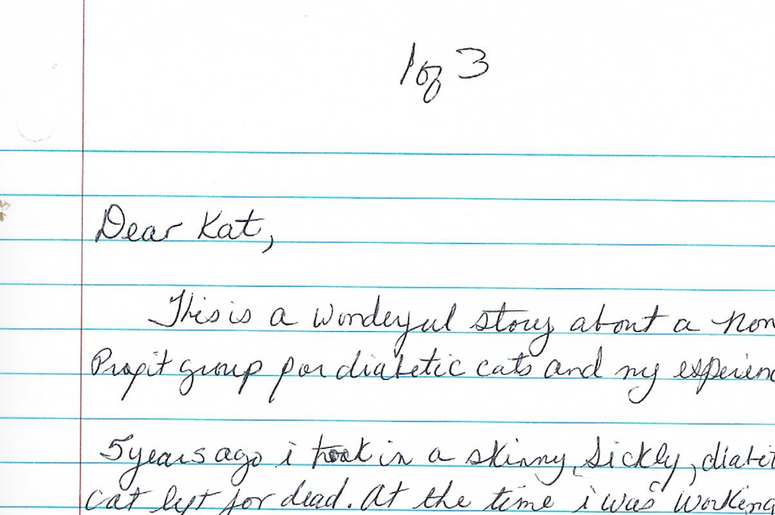 1 of 3
Dear Kat,
This is a wonderful story about a non
Profit group for diabetic cats and my experienc
5 years ago i took in a skinny, Sickly, diabet
cat left for dead. At the time i was working